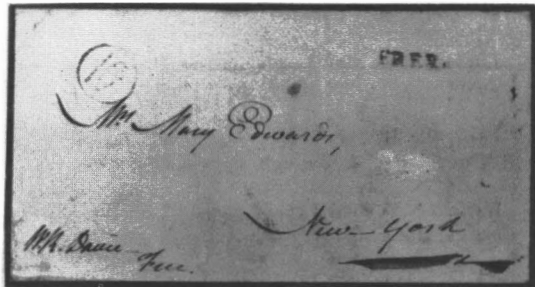 FREE.
Mrs Mary Edwards,
New-York
W.R. Davie
Free.